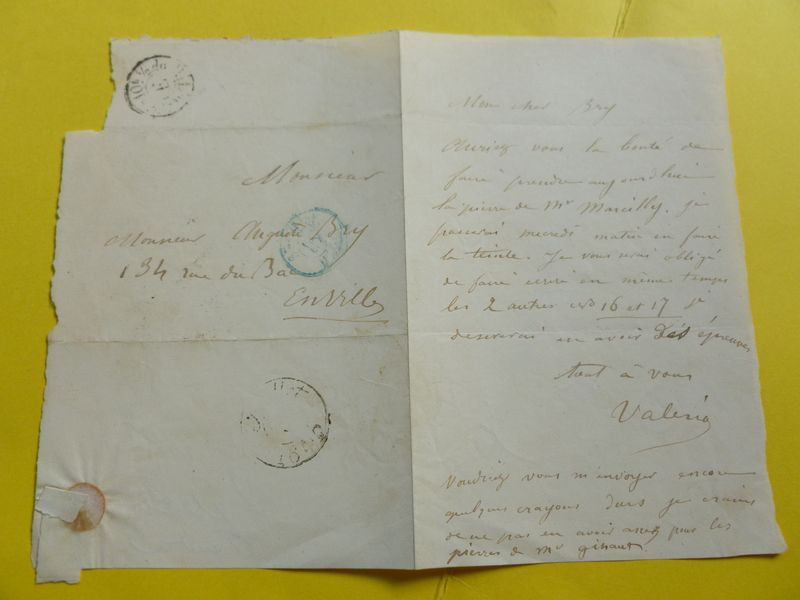 Monsieur
Monsieur Auguste Bry
134 rue du Bac
En Ville
Mon cher Bry
Auriez vous la bonté de
faire prendre aujourd'hui
la pierre de Mr Marcilly. je
passerai mecredi matin en faire
la teinte. Je vous serai obligé
de faire écrire en même temps
les 2 autres 16 et 17 je
desirerai en avoir Des épreuves
tout à vous
Valerio
Voudriez vous m'envoyer encore
quelques crayons durs je crains
de ne pas en avoir assez pour les
pierres de Mr